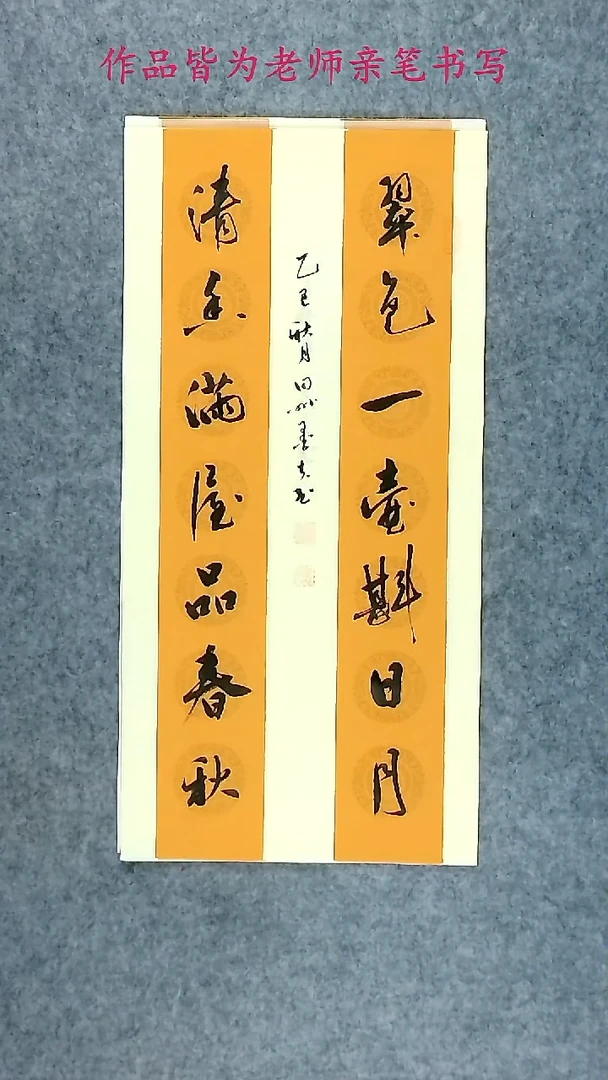 作品皆为老师亲笔书写
翠色一壶斟日月
清香满屋品春秋
乙巳秋月